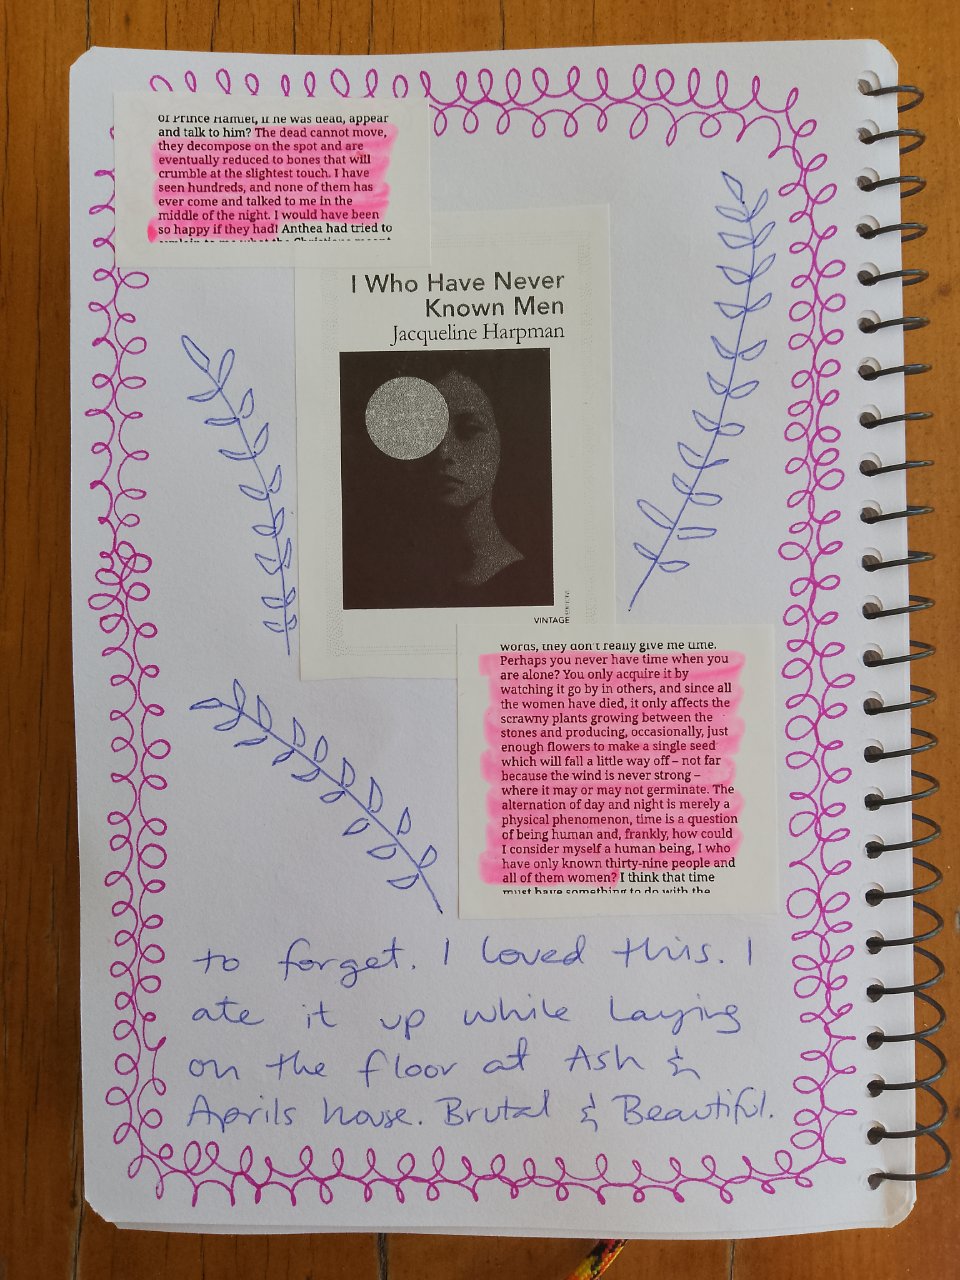 of Prince Hamlet, if he was dead, appear
and talk to him? The dead cannot move,
they decompose on the spot and are
eventually reduced to bones that will
crumble at the slightest touch. I have
seen hundreds, and none of them has
ever come and talked to me in the
middle of the night. I would have been
so happy if they had! Anthea had tried to
explain to me what the Christians meant
I Who Have Never
Known Men
Jacqueline Harpman
VINTAGE
words, they don't really give me time.
Perhaps you never have time when you
are alone? You only acquire it by
watching it go by in others, and since all
the women have died, it only affects the
scrawny plants growing between the
stones and producing, occasionally, just
enough flowers to make a single seed
which will fall a little way off – not far
because the wind is never strong –
where it may or may not germinate. The
alternation of day and night is merely a
physical phenomenon, time is a question
of being human and, frankly, how could
I consider myself a human being, I who
have only known thirty-nine people and
all of them women? I think that time
must have something to do with the
to forget. I loved this. I
ate it up while laying
on the floor at Ash &
Aprils house. Brutal & Beautiful.